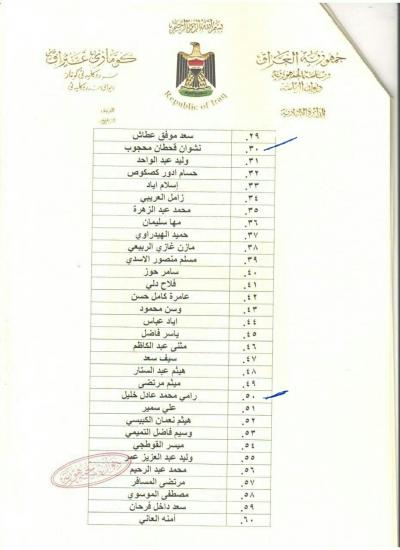 بسم الله الرحمن الرحيم
جمهورية العراق
كوماری عێراق
Republic of Iraq
٢٩. سعد موفق عطاش
٣٠. نشوان قحطان محجوب
٣١. وليد عبد الواحد
٣٢. حسام ادور كصكوص
٣٣. إسلام اياد
٣٤. زامل العريبي
٣٥. محمد عبد الزهرة
٣٦. مها سليمان
٣٧. حميد الهيدراوي
٣٨. مازن غازي الربيعي
٣٩. مسلم منصور الاسدي
٤٠. سامر حوز
٤١. فلاح دلي
٤٢. عامرة كامل حسن
٤٣. وسن محمود
٤٤. اياد عباس
٤٥. ياسر فاضل
٤٦. مثنى عبد الكاظم
٤٧. سيف سعد
٤٨. هيثم عبد الستار
٤٩. ميثم مرتضى
٥٠. رامي محمد عادل خليل
٥١. علي سمير
٥٢. هيثم نعمان الكبيسي
٥٣. وسيم فاضل التميمي
٥٤. ميسر القوطجي
٥٥. وليد عبد العزيز
٥٦. محمد عبد الرحيم
٥٧. مرتضى المسافر
٥٨. مصطفى الموسوي
٥٩. سعد داخل فرحان
٦٠. امنه العاني